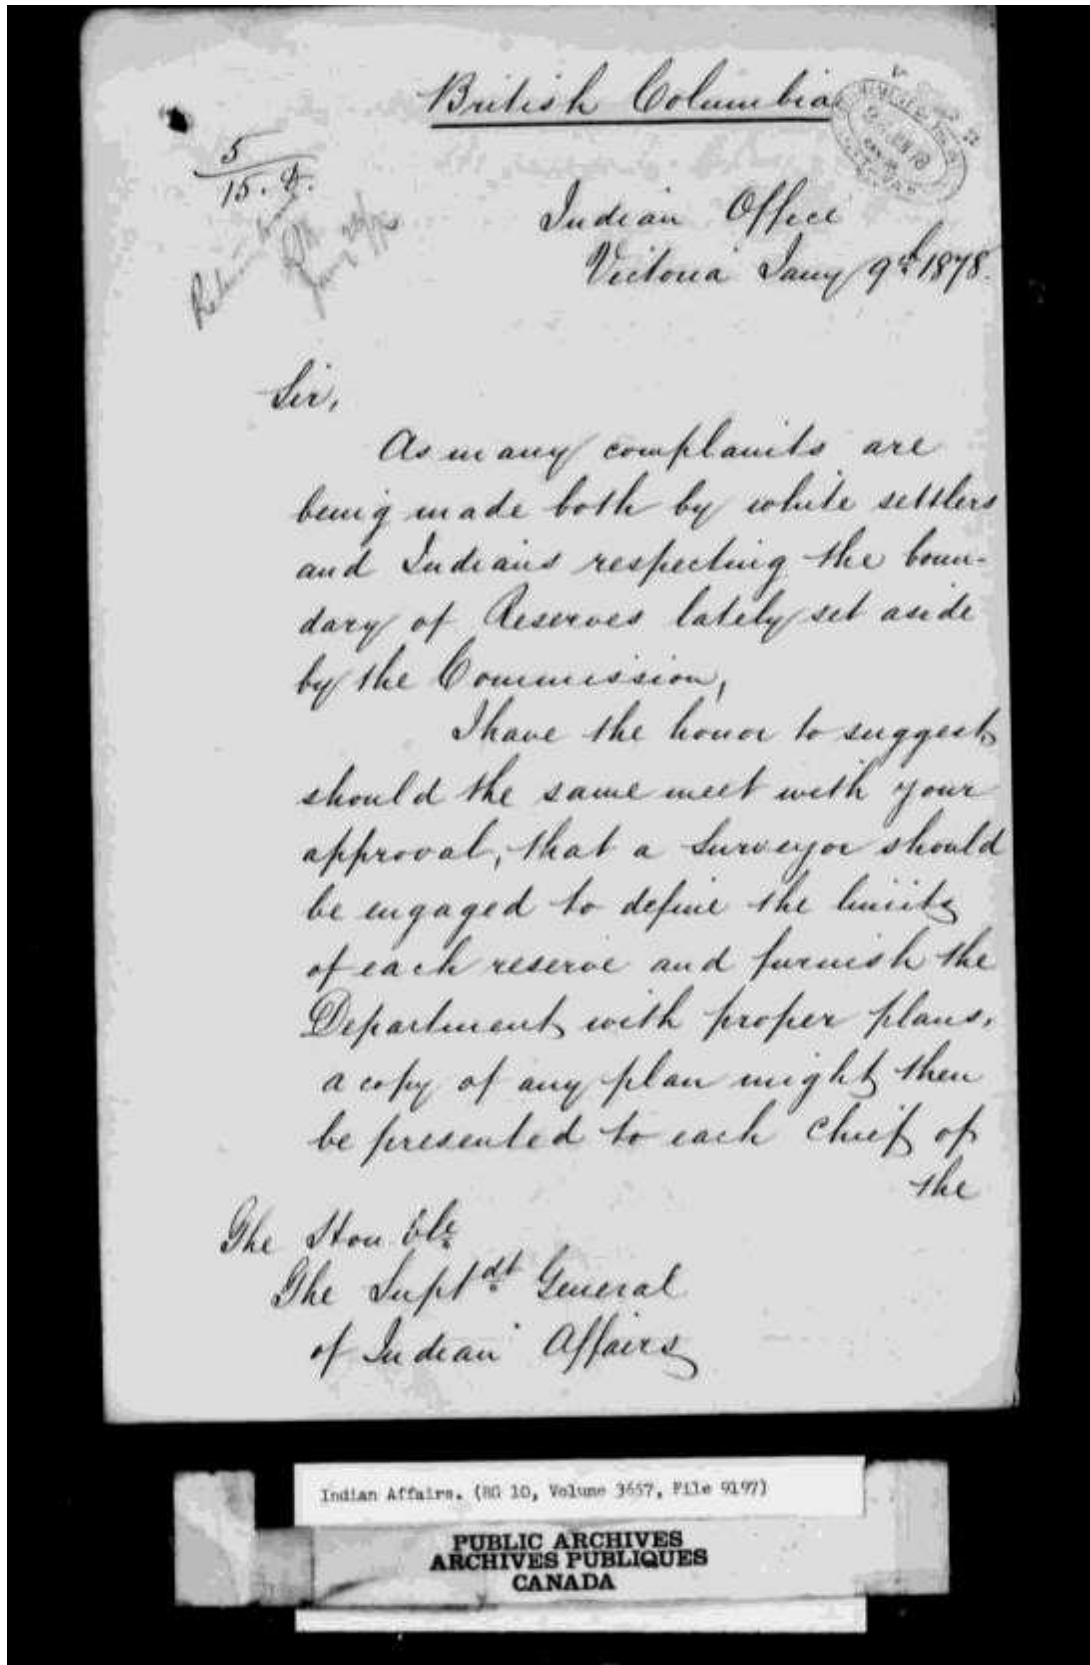 British Columbia
5
15. D.
Indian Office
Victoria Jany 9th 1878.
Sir,
As many complaints are
being made both by white settlers
and Indians respecting the boun-
dary of Reserves lately set aside
by the Commission,
I have the honor to suggest
should the same meet with your
approval, that a Surveyor should
be engaged to define the limits
of each reserve and furnish the
Department with proper plans,
a copy of any plan might then
be presented to each Chief of
the
The Honble
The Suptdt General
of Indian Affairs
Indian Affairs. (RG 10, Volume 3657, File 9197)
PUBLIC ARCHIVES
ARCHIVES PUBLIQUES
CANADA